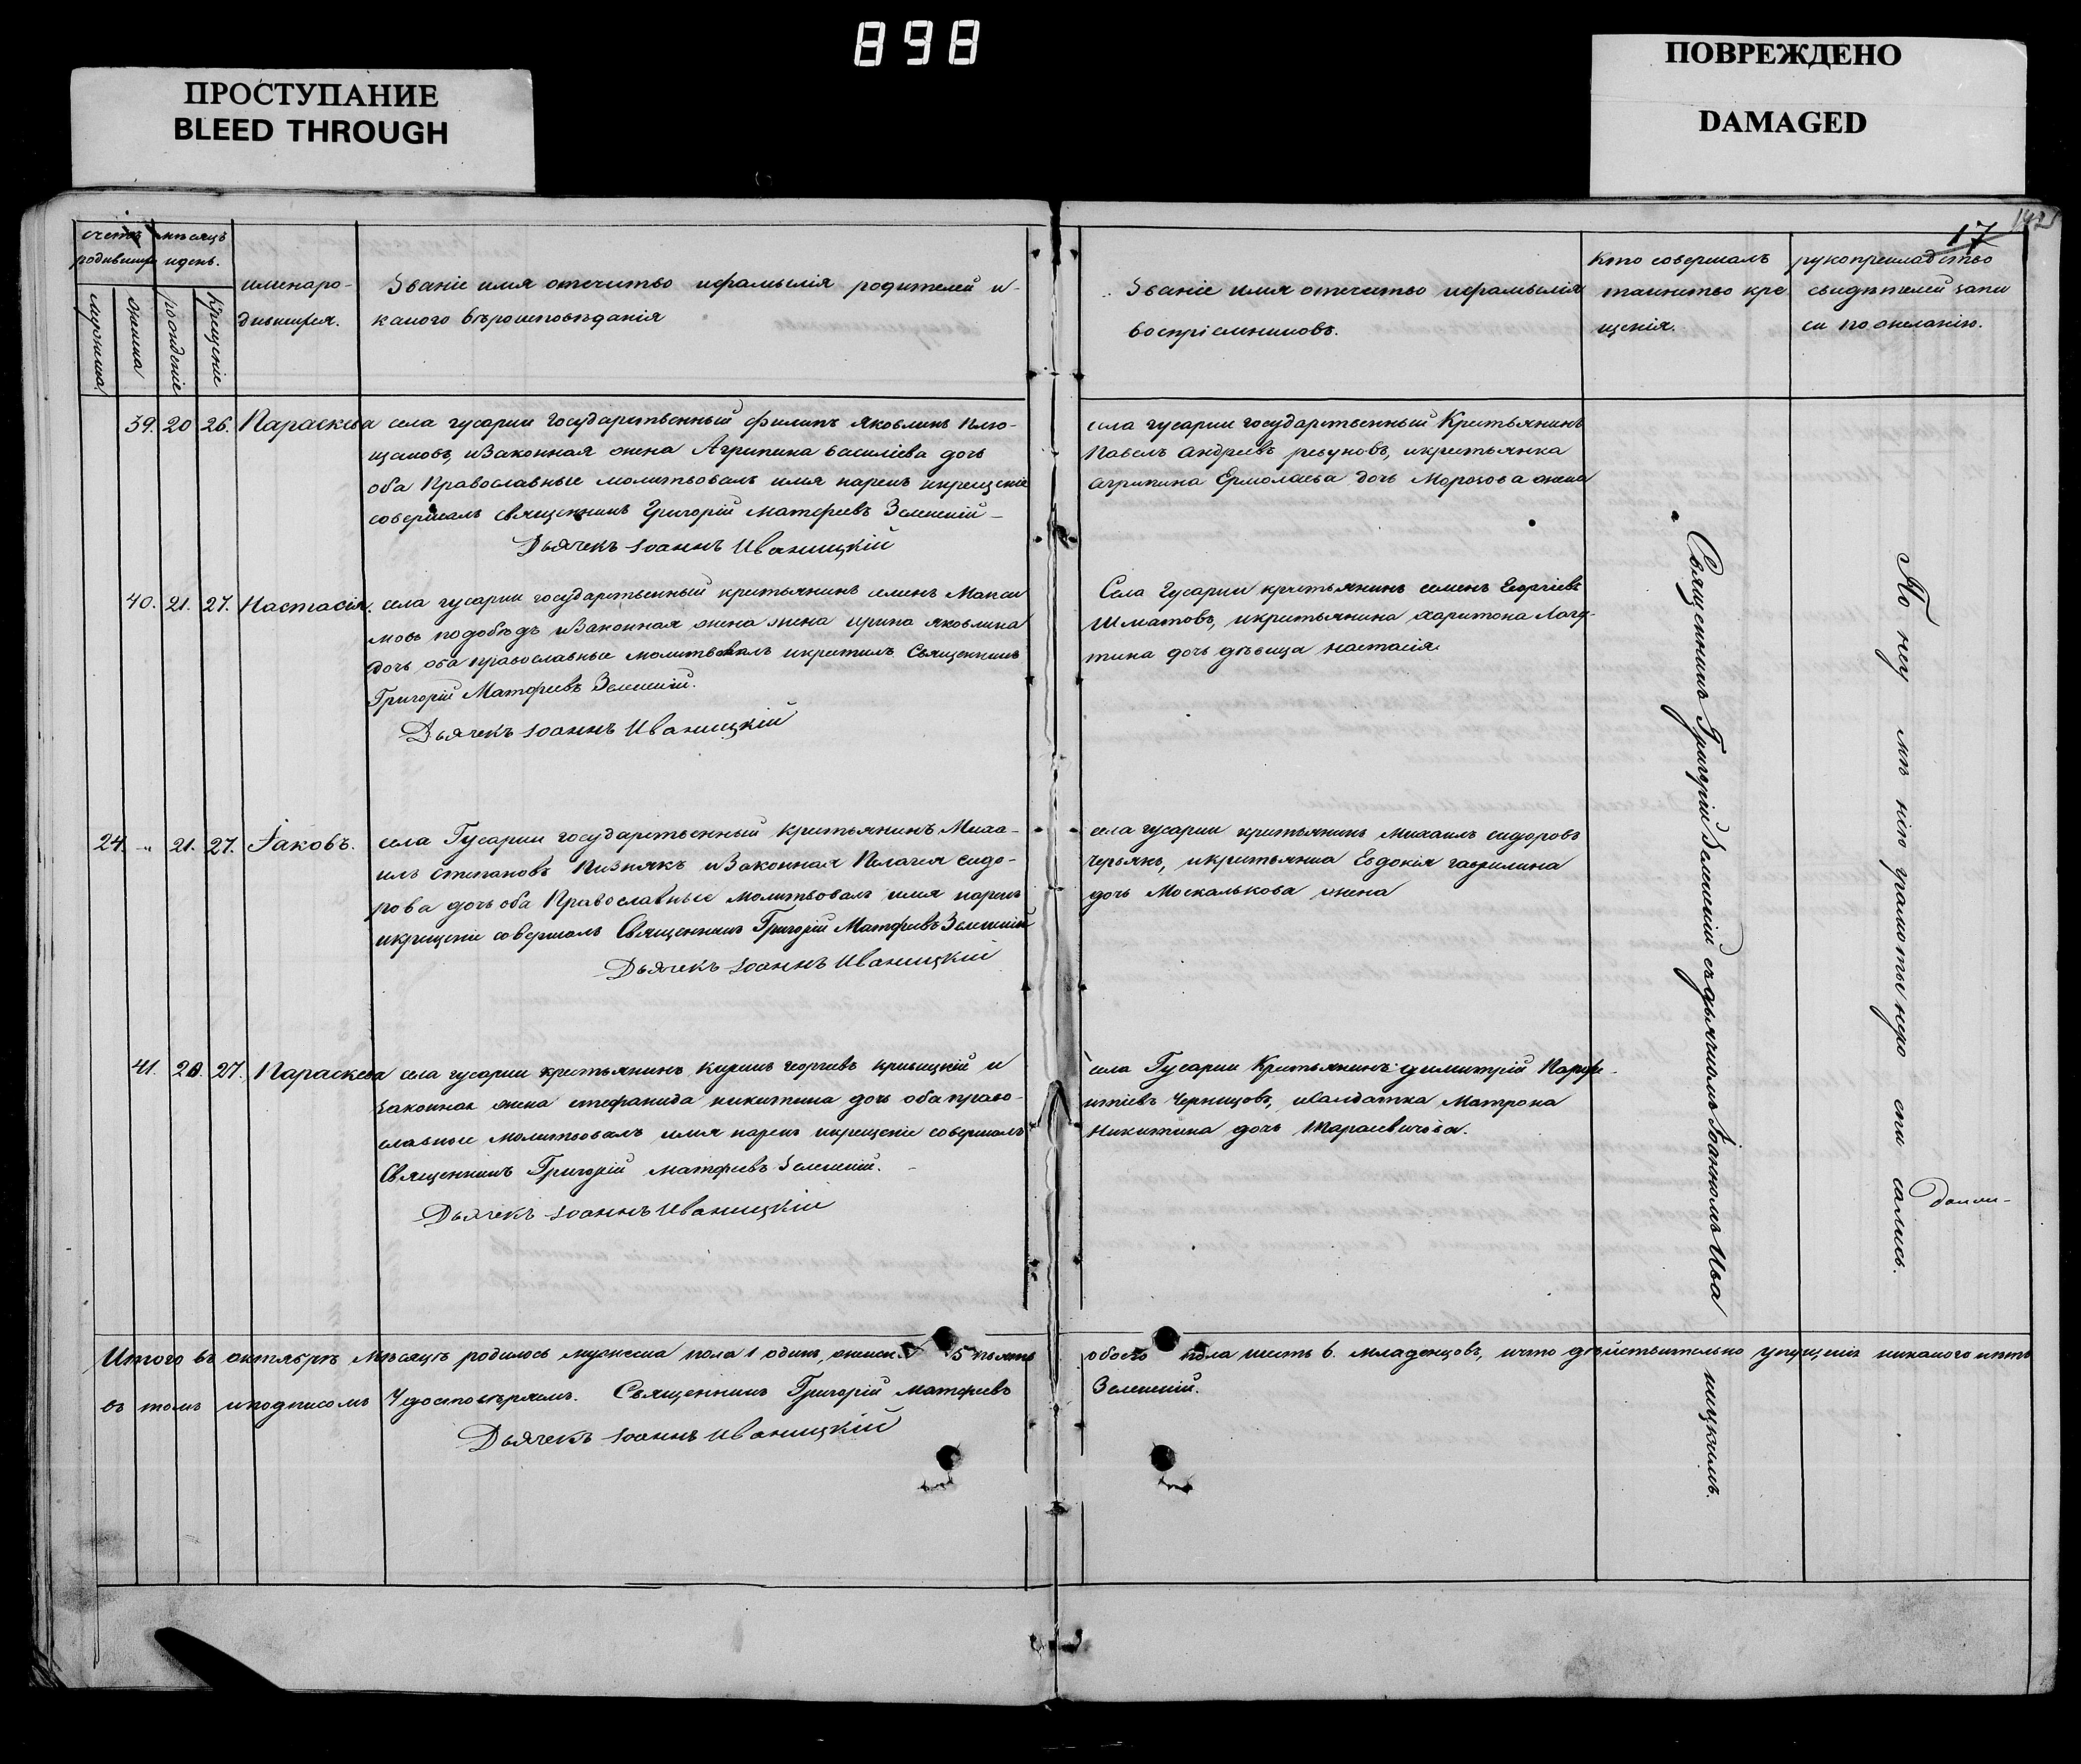 898
ПРОСТУПАНИЕ
BLEED THROUGH
ПОВРЕЖДЕНО
DAMAGED
17
счетъ родившихся
мѣсяцъ и день.
мужеска
женска
рожденіе
крещеніе
имена ро-
дившихся.
Званіе имя отечество и фамылія родителей и
какого вѣроисповѣданія
Званіе имя отечество и фамылія
воспріемниковъ.
Кто совершалъ
таинство кре
щенія.
рукоприкладство
свидѣтелей запи
си по желанію.
39. 20 26. Параскева
села гусарки государственный Филипъ Яковлинъ
и Законная жена Агрипина Василіева дочь
оба Православные молитвовалъ имя нарекъ и крещеніе
совершалъ священникъ Григорій Матфеевъ Зеленскій
Дьячекъ Іоаннъ Иваницкій
села гусарки государственный Крестьянинъ
Павелъ Андреевъ резуновъ, и крестьянка
агрипина Ермолаева дочь Морозова жена
40. 21. 27. Настасія.
села гусарки государственный крестьянинъ семенъ Макси
мовъ подобѣдъ и Законная жена жена ирина яковлина
дочь оба православные молитвовалъ и крестилъ Священникъ
Григорій Матфеевъ Зеленскій.
Дьячекъ Іоаннъ Иваницкій
Села Гусарки крестьянинъ семенъ Георгіевъ
Шматовъ, и крестьянина харитона
дочь дѣвица настасія.
24. " 21. 27. Іаковъ.
села Гусарки государственный крестьянинъ Миха-
илъ степановъ Пизнякъ и Законная Пелагея сидо-
рова дочь оба Православные молитвовалъ имя нарекъ
и крещеніе совершалъ Священникъ Григорій Матфеевъ Зеленскій
Дьячекъ Іоаннъ Иваницкій
села гусарки крестьянинъ Михаилъ сидоровъ
и крестьянка Евдокія гаврилина
дочь Москалькова жена
41. 20. 27. Параскева
села гусарки крестьянинъ Кирикъ георгіевъ кривицкій и
законная жена стефанида никитина дочь оба право-
славные молитвовалъ имя нарекъ и крещеніе совершалъ
Священникъ Григорій Матфеевъ Зеленскій.
Дьячекъ Іоаннъ Иваницкій
села Гусарки Крестьянинъ димитрій Парфе-
нтіевъ Чернцовъ, и салдатка Матрона
Никитина дочь Тарасевичева.
Священникъ Григорій Зеленскій съ дьячкомъ Іоанномъ Ива ницкимъ.
По неумѣнію грамоты неросписались.
Итого въ октябрѣ мѣсяцѣ родилось мужеска пола 1 одинъ, женска 5 пьять обоего пола шесть 6. младенцовъ, и что дѣйствительно упущенія никакого нѣтъ
въ томъ и подписомъ Удостовѣряемъ. Священникъ Григорій Матфеевъ Зеленскій.
Дьячекъ Іоаннъ Иваницкій